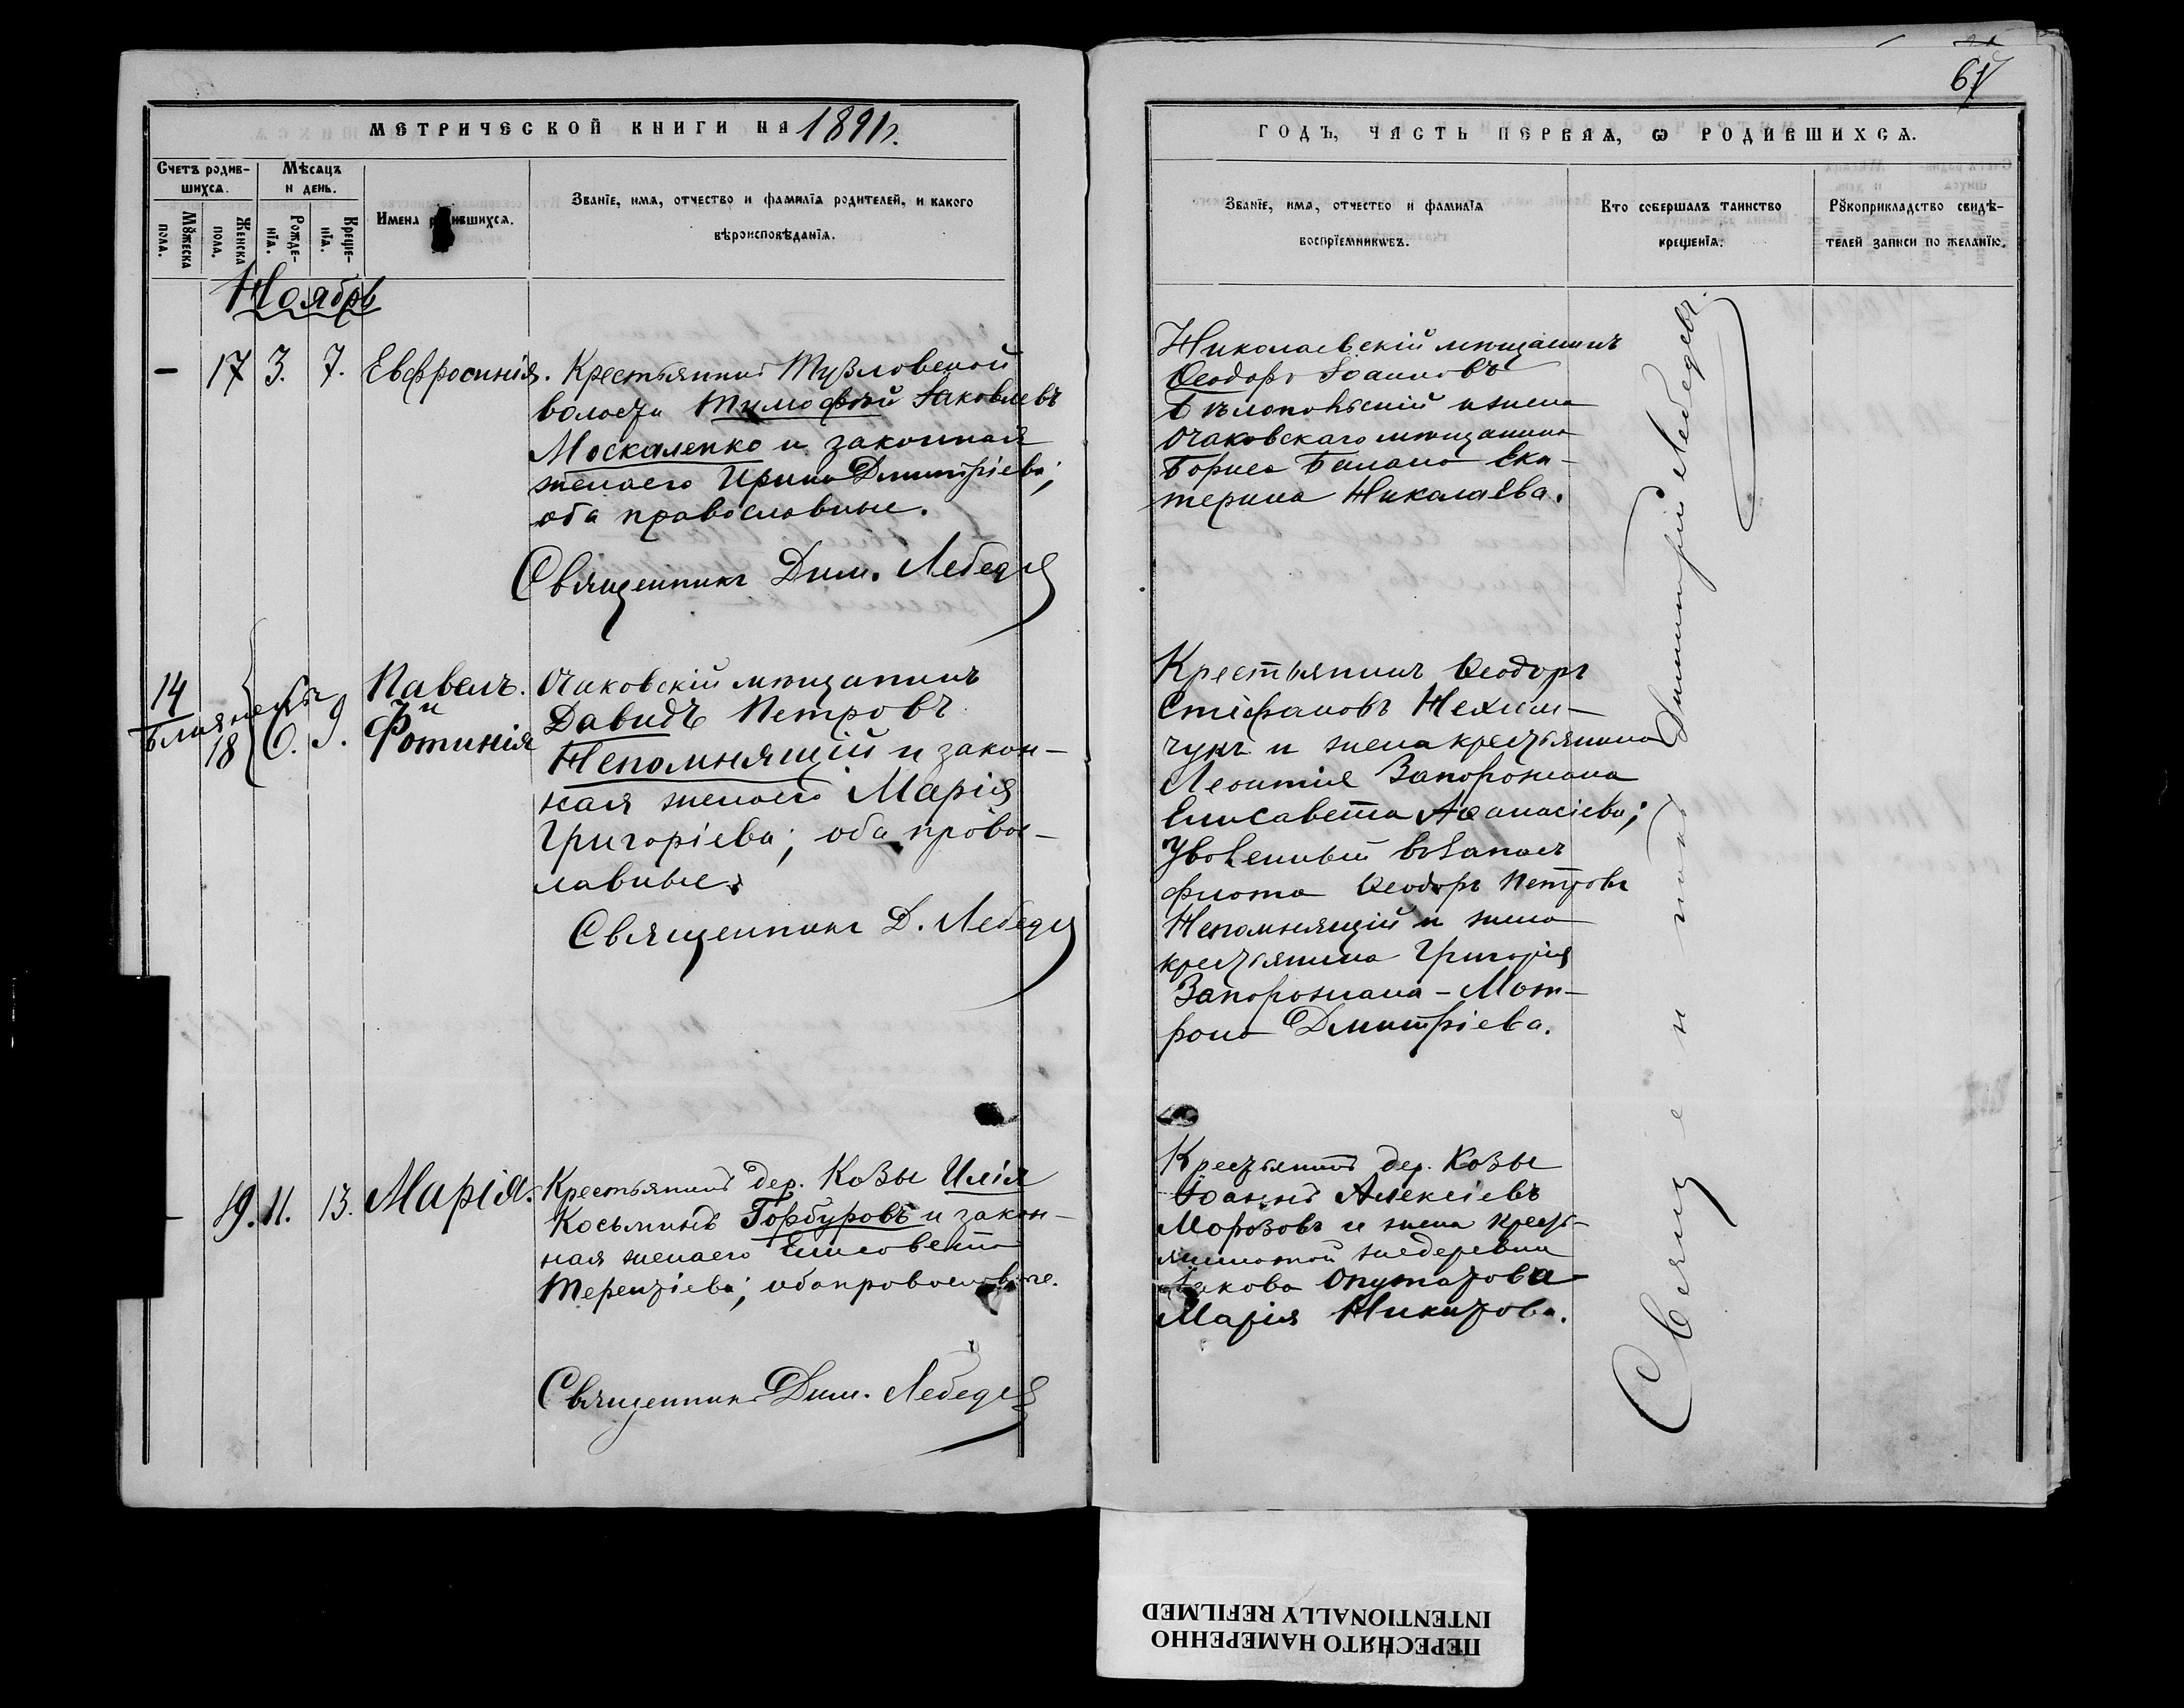 67
МЕТРИЧЕСКОЙ КНИГИ НА 1891 г.
Счетъ родив-
шихсѧ.
Мѣсѧцъ
и день.
Мꙋжеска
пола.
Женска
пола.
Рожде-
нїѧ.
Креще-
нїѧ.
Имена родившихсѧ.
Званїе, имѧ, отчество и фамилїѧ родителей, и какого
вѣроисповѣданїѧ.
Ноябрь
— 17 3. 7. Евфросинія.
Крестьянинъ Тузловской
волости Тимофѣй Іаковлевъ
Москаленко и законная
жена его Ирина Димитріева;
оба православные.
Священникъ Дим. Лебедев
14
близнецы
18
6. 9.
Павелъ.
и
Фотинія
Очаковскій мѣщанинъ
Давидъ Петровъ
Непомнящій и закон-
ная жена его Марія
Григоріева; оба правос-
лавные.
Священникъ Д. Лебедев
— 19. 11. 13. Марія.
Крестьянинъ дер. Козы Илія
Косьминъ Горбуровъ и закон-
ная жена его Елисавета
Терентіева; оба православные.
Священникъ Дим. Лебедев
ГОДЪ, ЧАСТЬ ПЕРВАѦ, Ѡ РОДИВШИХСѦ.
Званїе, имѧ, отчество и фамилїѧ
воспрїемникѡвъ.
Кто совершалъ таинство
крещенїѧ.
Рꙋкоприкладство свидѣ-
телей записи по желанїю.
Николаевскій мѣщанинъ
Ѳеодоръ Іоанновъ
Бѣлопольскій и жена
очаковскаго мѣщанина
Бориса Балана Ека-
терина Николаева.
Крестьянинъ Ѳеодоръ
Стефановъ
и жена крестьянина
Леонтія Запорожана
Елисавета Аѳанасіева;
Уволенный въ запасъ
флота Ѳеодоръ Петровъ
Непомнящій и жена
крестьянина Григорія
Запорожана - Мат-
рона Димитріева.
Крестьянинъ дер. Козы
Іоаннъ Алексіевъ
Морозовъ и жена кресть-
янина той же деревни
Іакова
Марія Никитова.
Священникъ Димитрій Лебедевъ.
ПЕРЕСНЯТО НАМЕРЕННО
INTENTIONALLY REFILMED